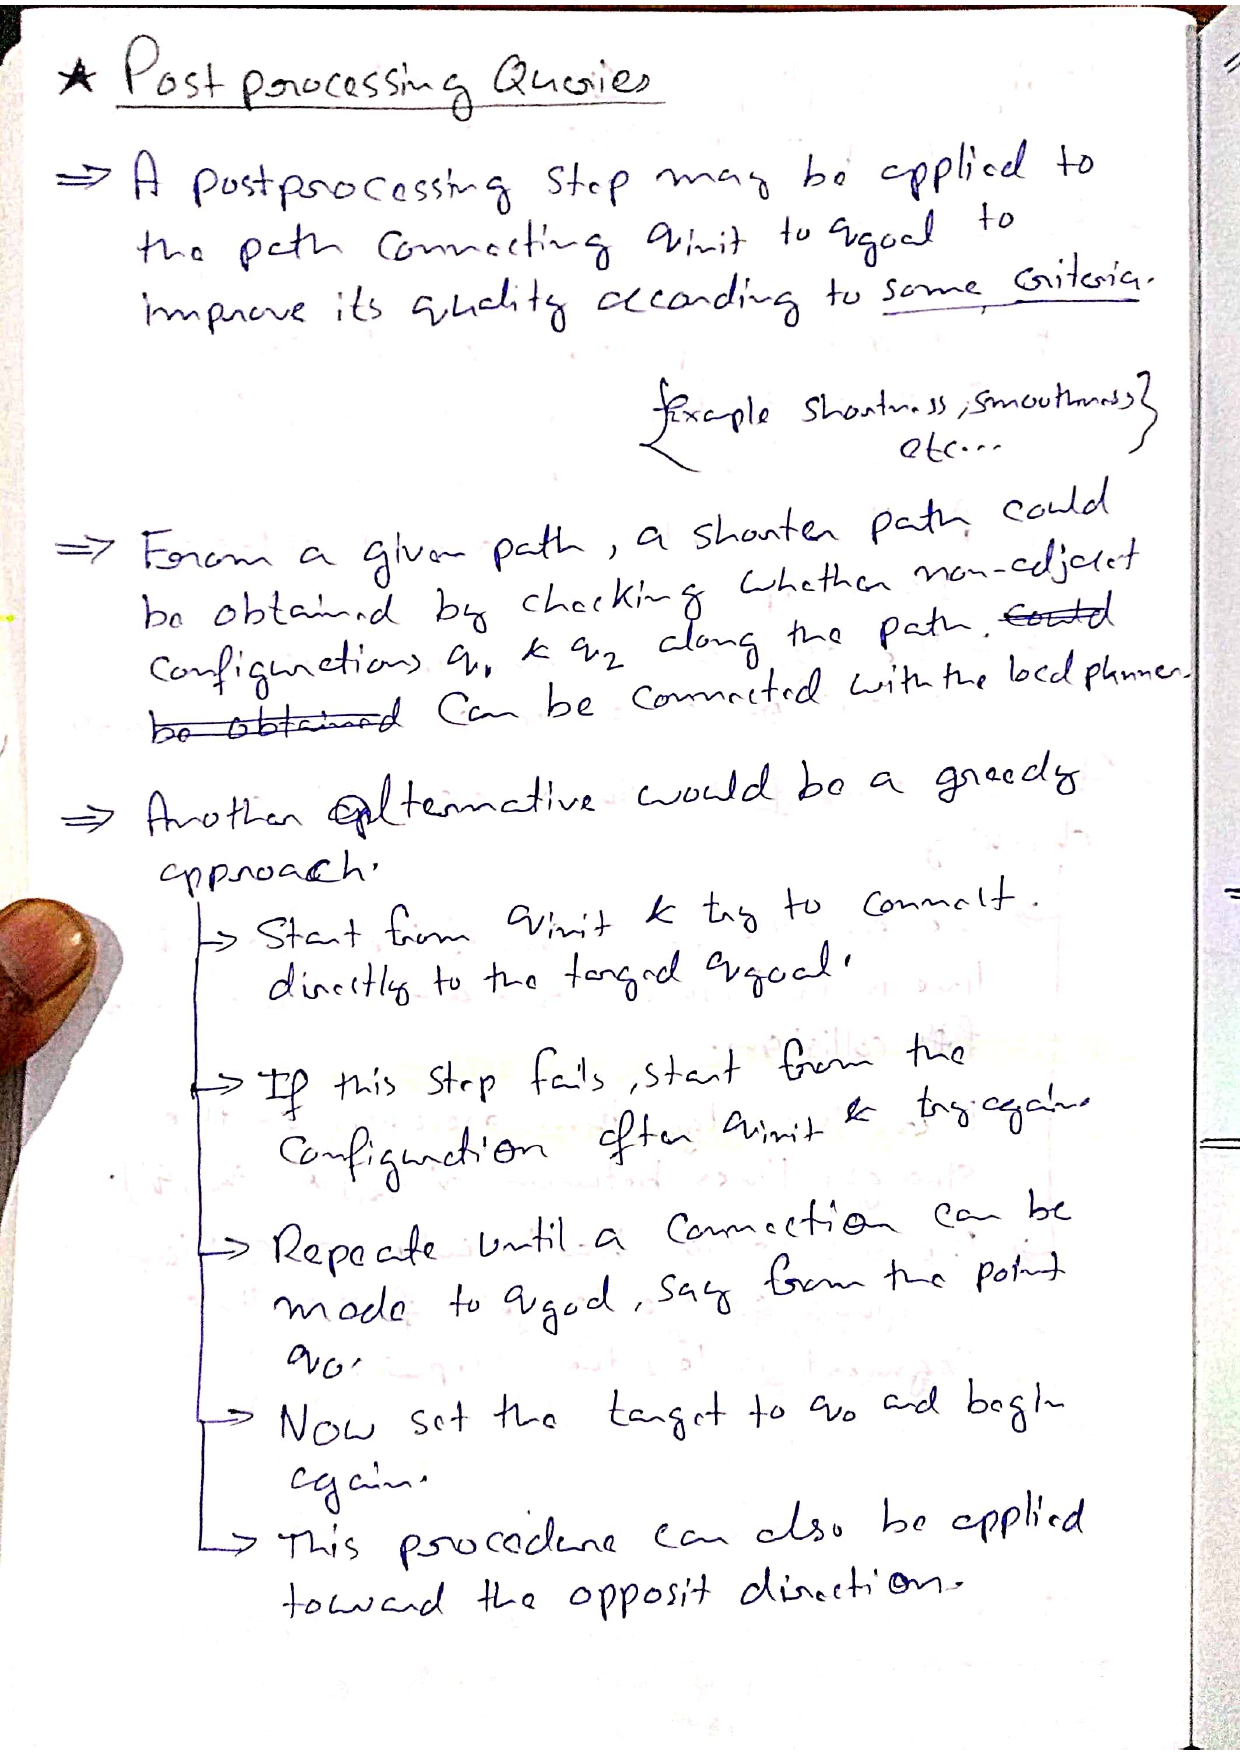 ★ Postprocessing Queries
⇒ A postprocessing step may be applied to
the path connecting qinit to qgoal to
improve its quality according to some criteria.
{Example shortness, smoothness}
etc...
⇒ From a given path, a shorter path could
be obtained by checking whether non-adjacet
configurations q1 & q2 along the path. could
be obtained Can be connected with the local planner.
⇒ Another alternative would be a greedy
approach.
→ Start from qinit & try to connect.
directly to the targed qgoal.
→ If this step fails, start from the
configuration after qinit & try again.
→ Repeate until a connection can be
made to qgoal, say from the point
q0.
→ Now set the target to q0 and begin
again.
→ This procedure can also be applied
toward the opposit direction.